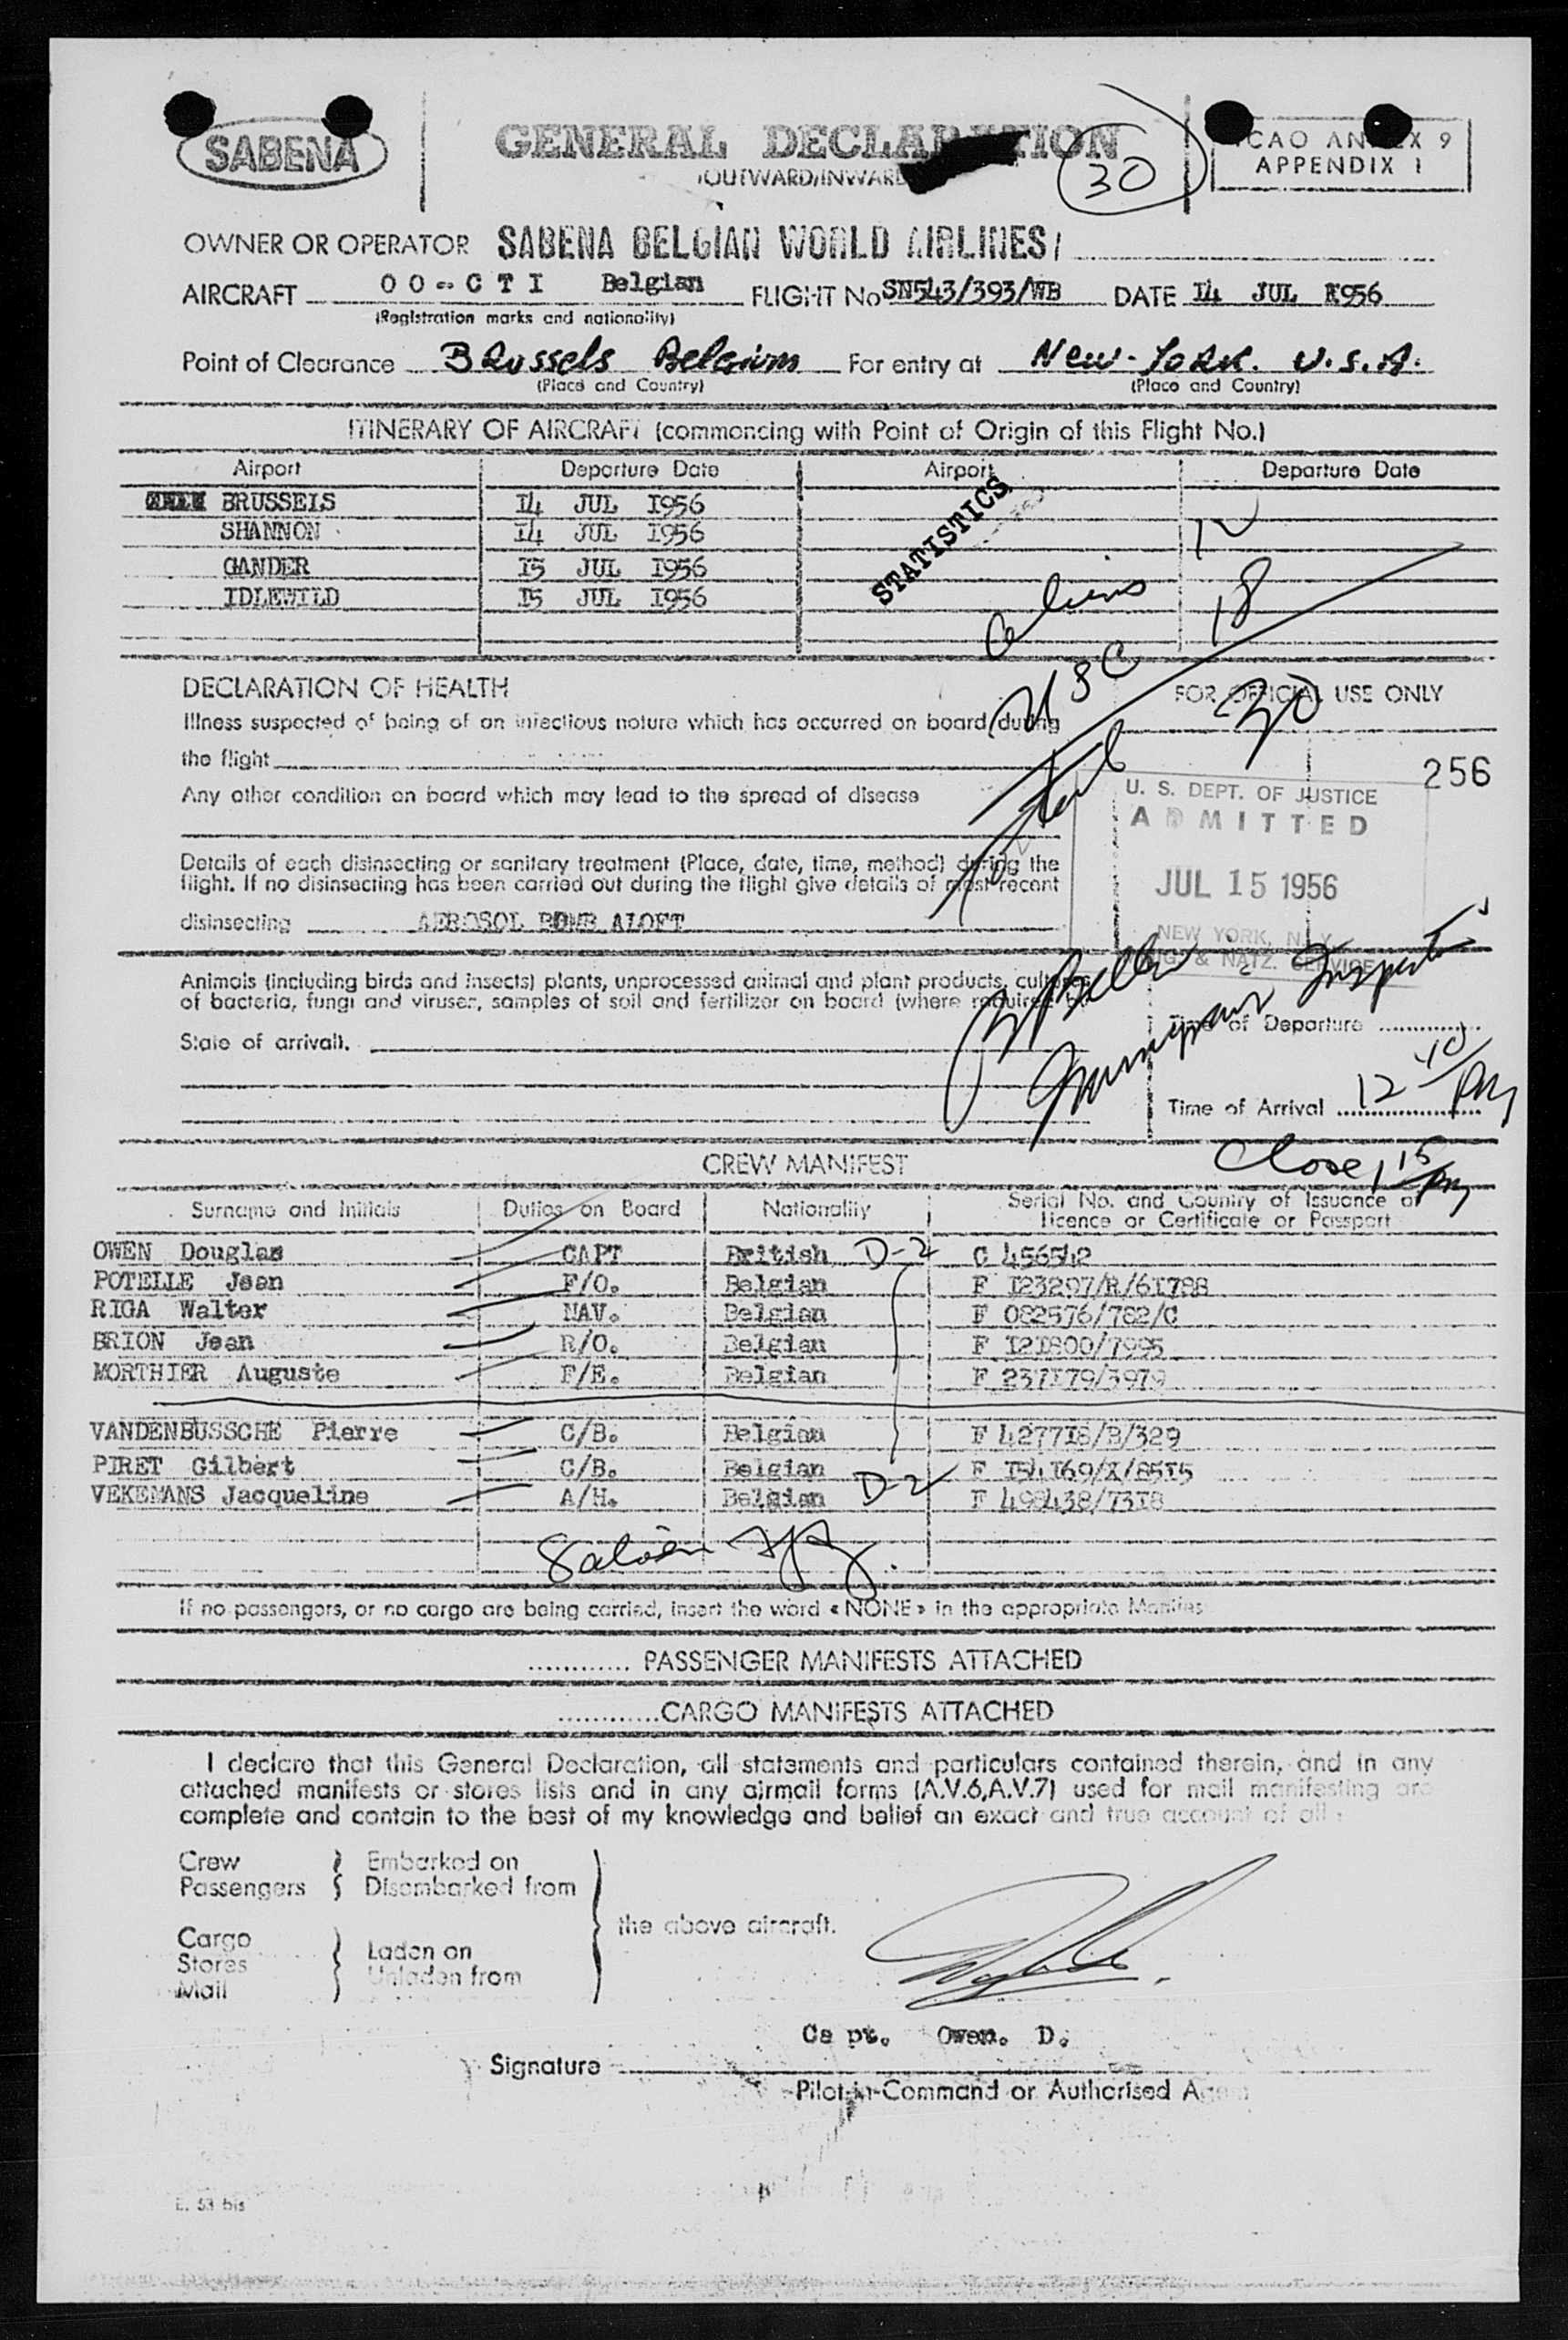 SABENA
GENERAL DECLARATION
(OUTWARD/INWARD
30
ICAO ANNEX 9
APPENDIX 1
OWNER OR OPERATOR SABENA BELGIAN WORLD AIRLINES/
AIRCRAFT OO-CTI Belgian FLIGHT No SN543/393/WB DATE I4 JUL I956
(Registration marks and nationality)
Point of Clearance Brussels Belgium For entry at New-York. U.S.A.
(Place and Country) (Place and Country)
ITINERARY OF AIRCRAFT (commencing with Point of Origin of this Flight No.)
Airport Departure Date Airport Departure Date
BRUSSELS I4 JUL I956
SHANNON I4 JUL I956
GANDER I5 JUL I956
IDLEWILD I5 JUL I956
STATISTICS
aliens 18
USC 12
Total 30
DECLARATION OF HEALTH
FOR OFFICIAL USE ONLY
Illness suspected of being of an infectious nature which has occurred on board during
the flight
Any other condition on board which may lead to the spread of disease
256
U. S. DEPT. OF JUSTICE
ADMITTED
JUL 15 1956
NEW YORK, N. Y.
IMMIG. & NATZ. SERVICE
Details of each disinsecting or sanitary treatment (Place, date, time, method) during the
flight. If no disinsecting has been carried out during the flight give details of most recent
disinsecting AEROSOL BOMB ALOFT
Animals (including birds and insects) plants, unprocessed animal and plant products, cultures
of bacteria, fungi and viruses, samples of soil and fertilizer on board (where required by
State of arrival).
Immigrant Inspector
Time of Departure
Time of Arrival 12 40/PM
Close 1 15/PM
CREW MANIFEST
Surname and Initials Duties on Board Nationality Serial No. and Country of Issuance of
licence or Certificate or Passport
OWEN Douglas CAPT British D-2 C 456542
POTELLE Jean F/O. Belgian F I23297/R/6I788
RIGA Walter NAV. Belgian F 082576/782/C
BRION Jean R/O. Belgian F I2I800/7995
MORTHIER Auguste F/E. Belgian F 237I79/3979
VANDENBUSSCHE Pierre C/B. Belgian F 4277I8/B/329
PIRET Gilbert C/B. Belgian D-2 F I54I69/X/85I5
VEKEMANS Jacqueline A/H. Belgian F 498438/73I8
If no passengers, or no cargo are being carried, insert the word « NONE » in the appropriate Manifest
............ PASSENGER MANIFESTS ATTACHED
............CARGO MANIFESTS ATTACHED
I declare that this General Declaration, all statements and particulars contained therein, and in any
attached manifests or stores lists and in any airmail forms (A.V.6,A.V.7) used for mail manifesting are
complete and contain to the best of my knowledge and belief an exact and true account of all :
Crew Embarked on
Passengers Disembarked from
the above aircraft.
Cargo
Stores Laden on
Mail Unladen from
Capt. Owen. D.
Signature
Pilot-in-Command or Authorised Agent
E. 53 bis